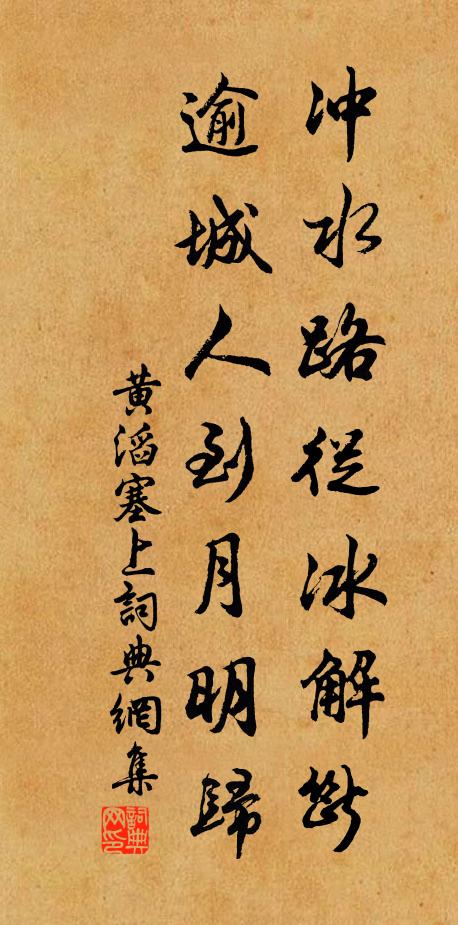 冲水路從冰解斷
逾城人到月明歸
黄滔塞上詞典網集
詞典网印